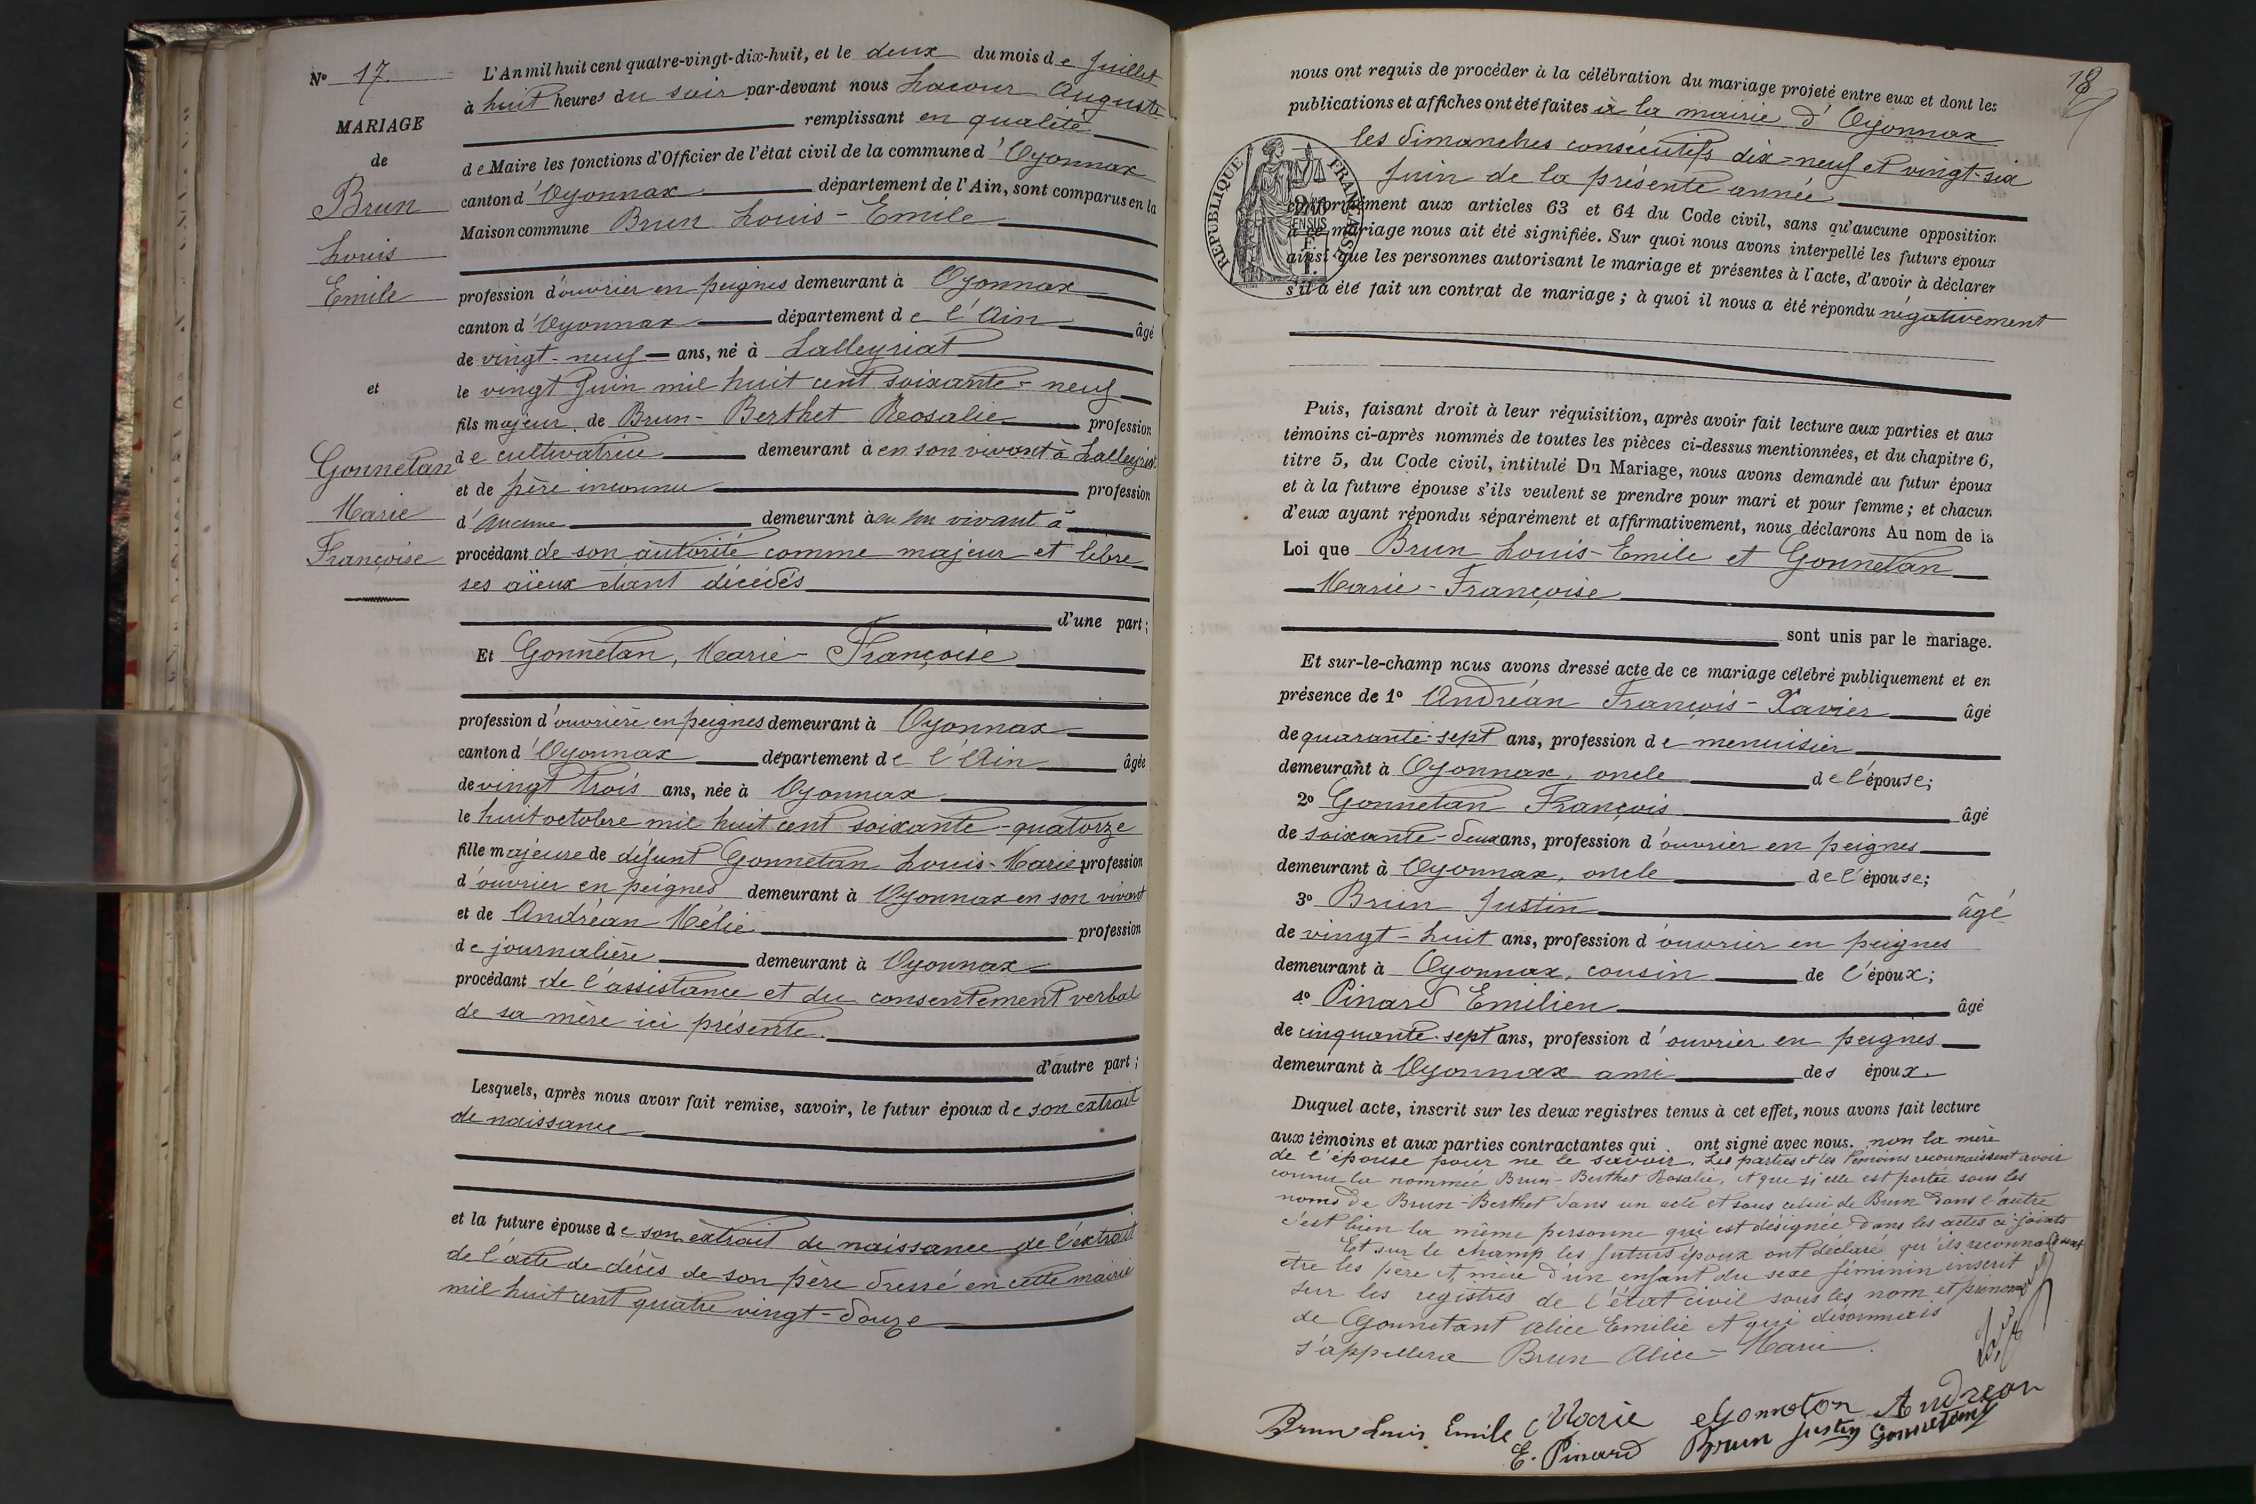 N° 17.
MARIAGE
de
Brun
Louis
Emile
et
Gonnetan
Marie
Françoise
L'An mil huit cent quatre-vingt-dix-huit, et le deux du mois de Juillet
à huit heures du soir par-devant nous Lacour Auguste
remplissant en qualité
de Maire les fonctions d'Officier de l'état civil de la commune d'Oyonnax
canton d'Oyonnax département de l'Ain, sont comparus en la
Maison commune Brun Louis-Emile
profession d'ouvrier en peignes demeurant à Oyonnax
canton d'Oyonnax département de l'Ain âgé
de vingt-neuf ans, né à Lalleyriat
le vingt Juin mil huit cent soixante-neuf
fils majeur de Brun-Berthet Rosalie profession
de cultivatrice demeurant à en son vivant à Lalleyriat
et de père inconnu profession
d'aucune demeurant à en son vivant à
procédant de son autorité comme majeur et libre
ses aïeux étant décédés
d'une part;
Et Gonnetan, Marie-Françoise
profession d'ouvrière en peignes demeurant à Oyonnax
canton d'Oyonnax département de l'Ain âgée
de vingt trois ans, née à Oyonnax
le huit octobre mil huit cent soixante-quatorze
fille majeure de défunt Gonnetan Louis-Marie profession
d'ouvrier en peignes demeurant à Oyonnax en son vivant
et de Andréan Mélie profession
de journalière demeurant à Oyonnax
procédant de l'assistance et du consentement verbal
de sa mère ici présente.
d'autre part;
Lesquels, après nous avoir fait remise, savoir, le futur époux de son extrait
de naissance
et la future épouse de son extrait de naissance de l'extrait
de l'acte de décès de son père dressé en cette mairie
mil huit cent quatre vingt-douze
18
nous ont requis de procéder à la célébration du mariage projeté entre eux et dont les
publications et affiches ont été faites à la mairie d'Oyonnax
les dimanches consécutifs dix-neuf et vingt-six
Juin de la présente année
RÉPUBLIQUE FRANÇAISE
conformément aux articles 63 et 64 du Code civil, sans qu'aucune opposition
à ce mariage nous ait été signifiée. Sur quoi nous avons interpellé les futurs époux
ainsi que les personnes autorisant le mariage et présentes à l'acte, d'avoir à déclarer
s'il a été fait un contrat de mariage; à quoi il nous a été répondu négativement
Puis, faisant droit à leur réquisition, après avoir fait lecture aux parties et aux
témoins ci-après nommés de toutes les pièces ci-dessus mentionnées, et du chapitre 6,
titre 5, du Code civil, intitulé Du Mariage, nous avons demandé au futur époux
et à la future épouse s'ils veulent se prendre pour mari et pour femme; et chacun
d'eux ayant répondu séparément et affirmativement, nous déclarons Au nom de la
Loi que Brun Louis-Emile et Gonnetan
Marie-Françoise
sont unis par le mariage.
Et sur-le-champ nous avons dressé acte de ce mariage célébré publiquement et en
présence de 1° Andréan François-Xavier âgé
de quarante-sept ans, profession de menuisier
demeurant à Oyonnax, oncle de l'épouse;
2° Gonnetan François âgé
de soixante-deux ans, profession d'ouvrier en peignes
demeurant à Oyonnax, oncle de l'épouse;
3° Brun Justin âgé
de vingt-huit ans, profession d'ouvrier en peignes
demeurant à Oyonnax, cousin de l'époux;
4° Pinard Emilien âgé
de cinquante-sept ans, profession d'ouvrier en peignes
demeurant à Oyonnax ami des époux.
Duquel acte, inscrit sur les deux registres tenus à cet effet, nous avons fait lecture
aux témoins et aux parties contractantes qui ont signé avec nous. non la mère
de l'épouse pour ne le savoir. Les parties et les témoins reconnaissent avoir
connu la nommée Brun-Berthet Rosalie, et que si elle est portée sous les
noms de Brun-Berthet dans un acte et sous celui de Brun dans l'autre
c'est bien la même personne qui est désignée dans les actes ci-joints
Et sur le champ les futurs époux ont déclaré qu'ils reconnaissent
être les père et mère d'un enfant du sexe féminin inscrit
sur les registres de l'état civil sous les nom et prénoms
de Gonnetant Alice Emilie et qui désormais
s'appellera Brun Alice-Marie.
Brun Louis Emile Marie Gonneton Andréan
E. Pinard Brun Justin Gonnetant